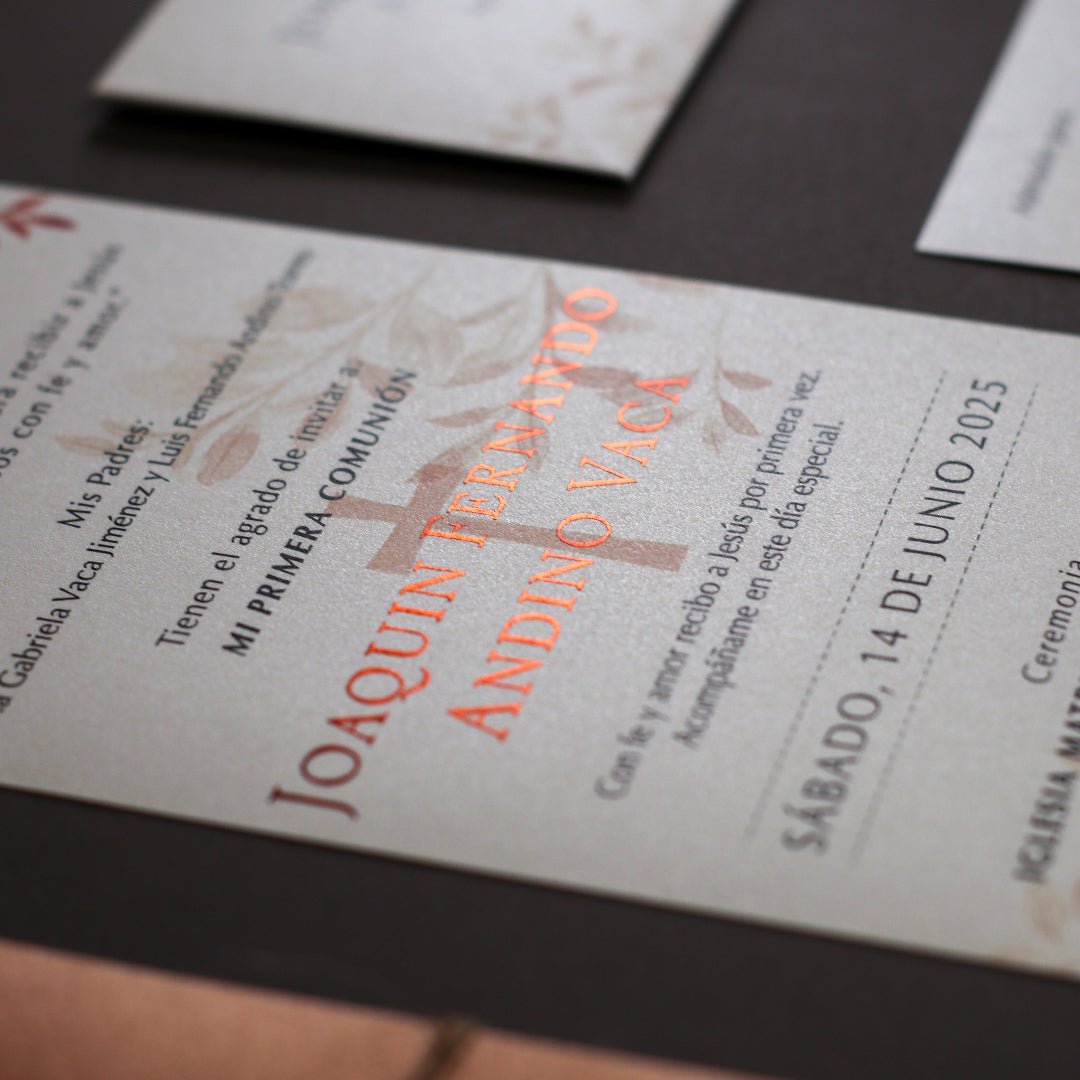 recibir a Jesús
os con fe y amor."
Mis Padres:
Gabriela Vaca Jiménez y Luis Fernando Andino
Tienen el agrado de invitar a:
MI PRIMERA COMUNIÓN
JOAQUIN FERNANDO
ANDINO VACA
Con fe y amor recibo a Jesús por primera vez.
Acompáñame en este día especial.
SÁBADO, 14 DE JUNIO 2025
Ceremonia
IGLESIA